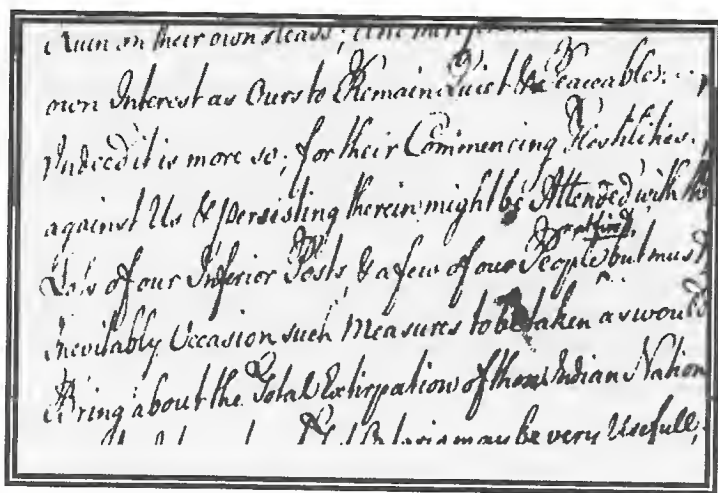 Ruin on their own Heads;
own Interest as Ours to Remain Quiet & Peaceable;
Indeed it is more so; for their Commencing Hostilities,
against Us & persisting therein might be Attended with the
at first,
Loss of our Inferior Posts, & a few of our People but must
Inevitably Occasion such Measures to be taken as would
Bring about the Total Extirpation of those Indian Nation
may be very Usefull,